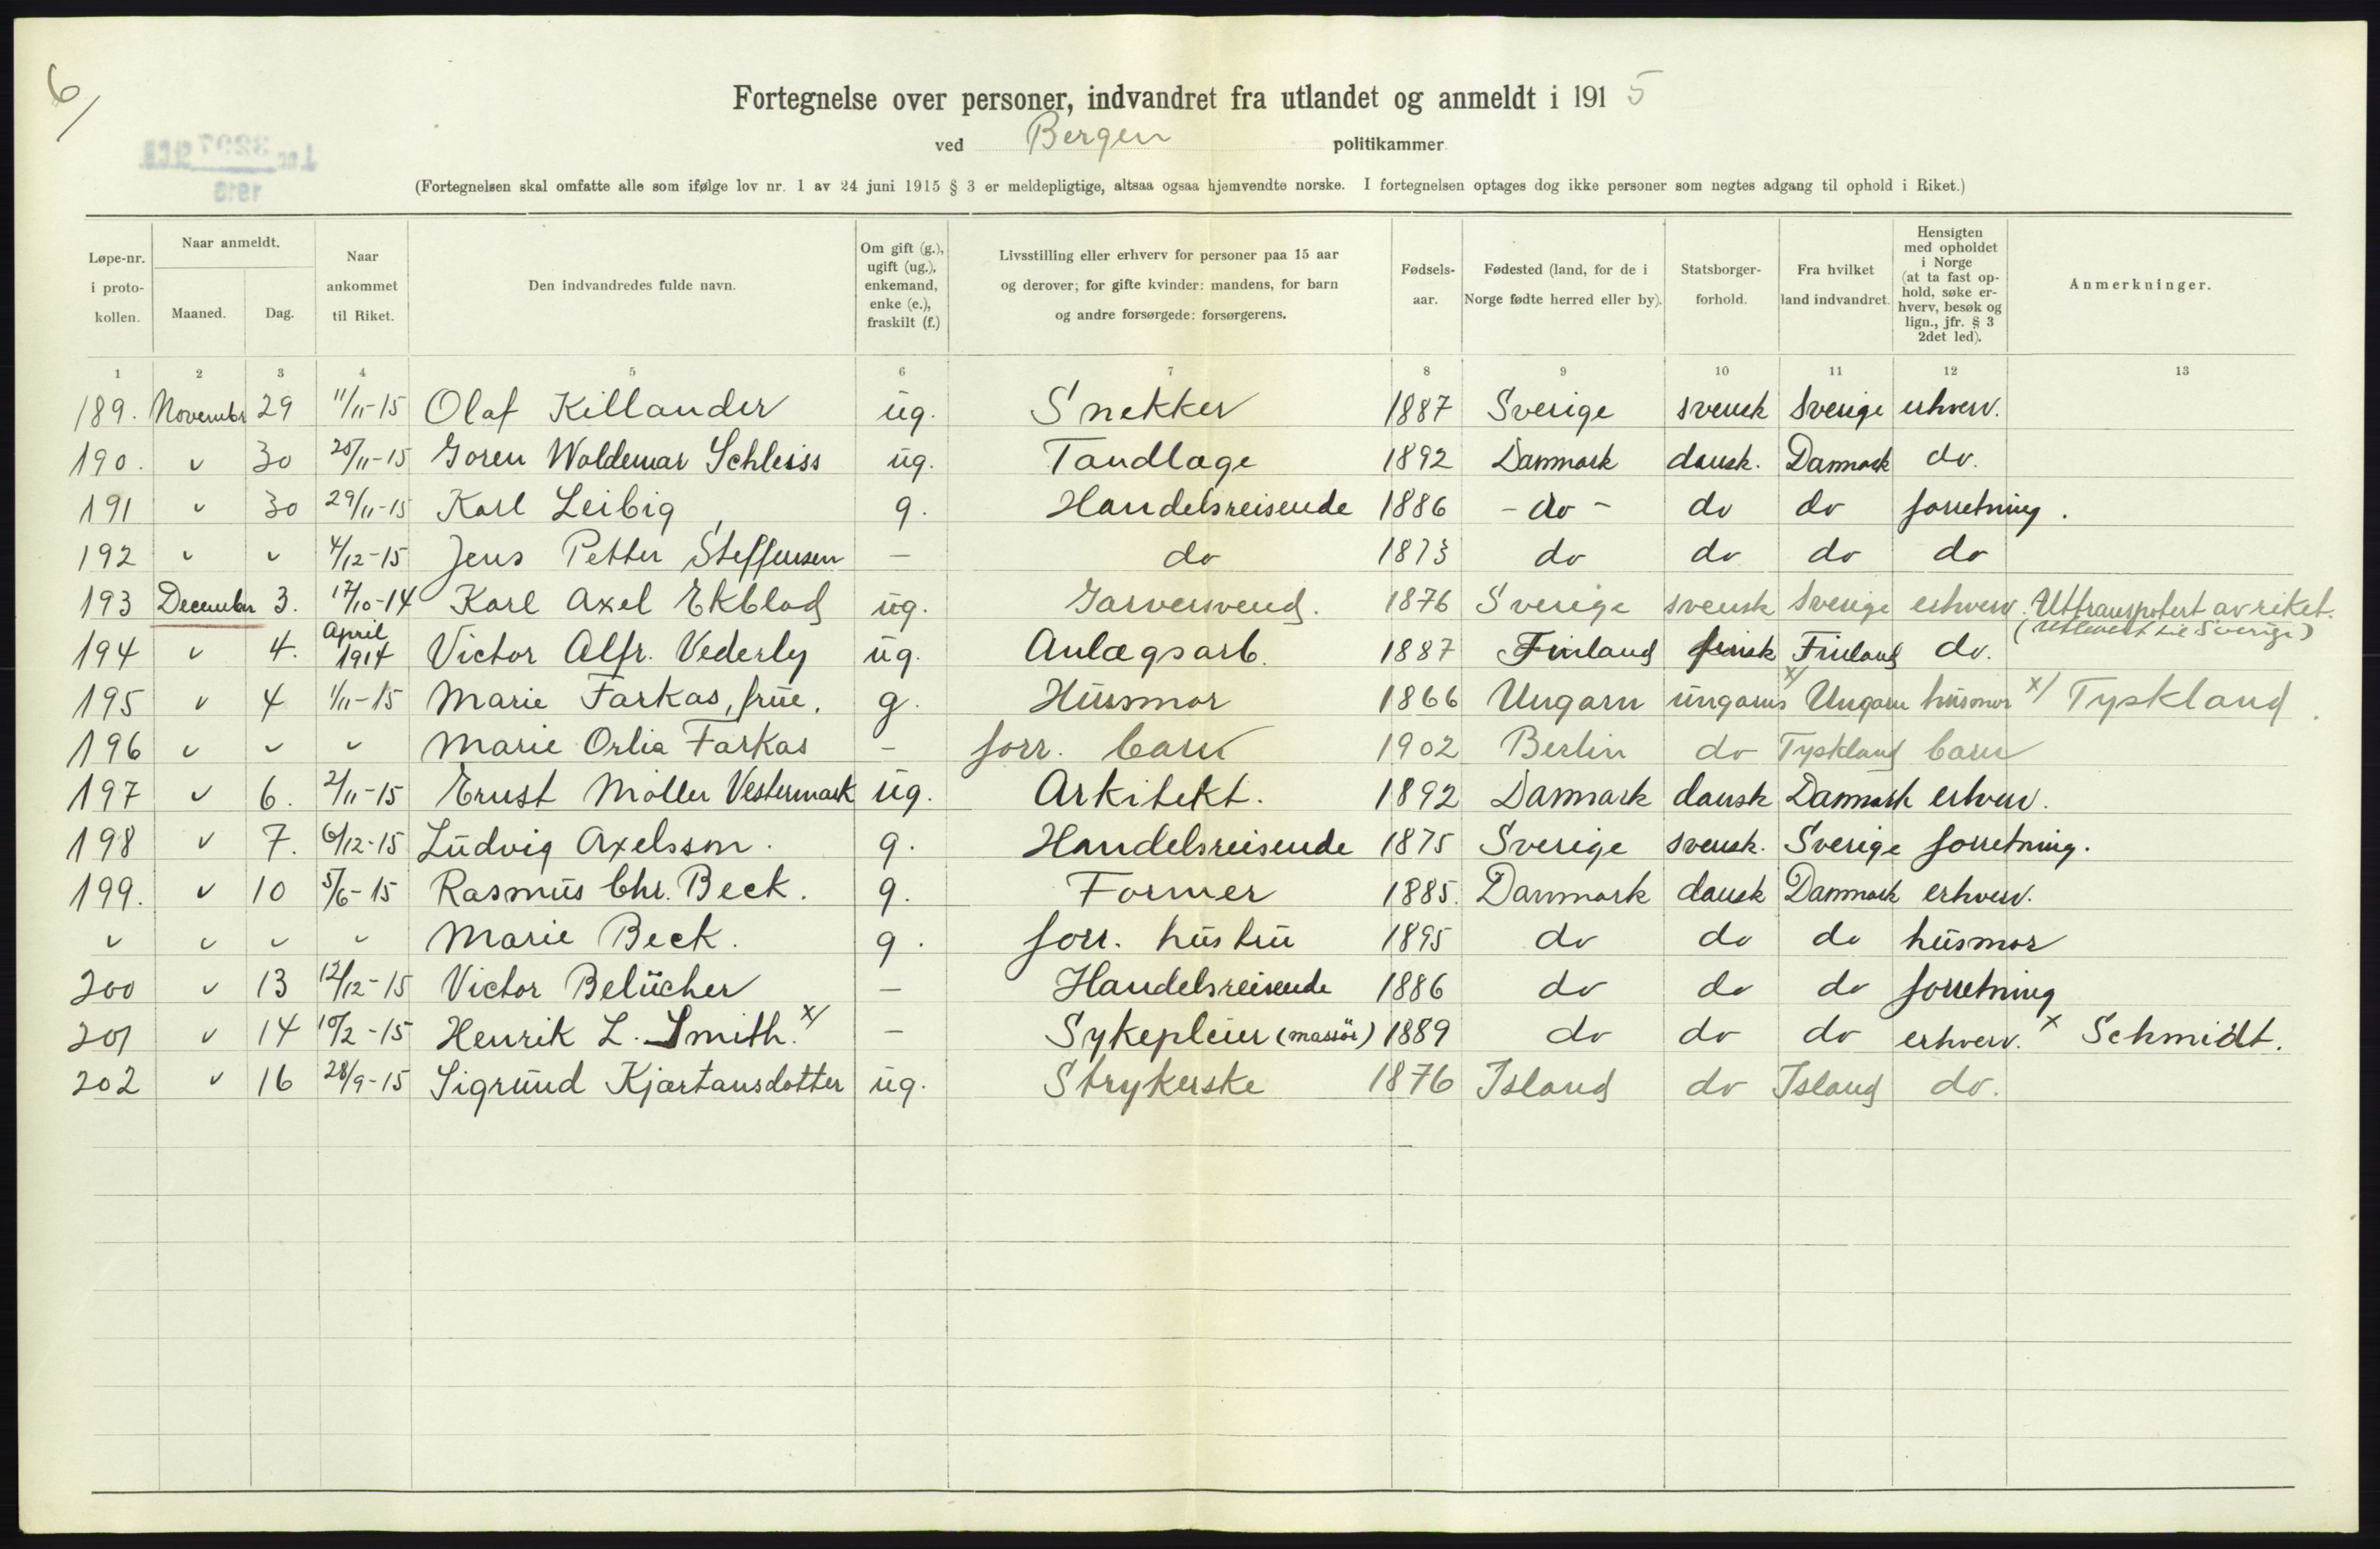 6/
Fortegnelse over personer, indvandret fra utlandet og anmeldt i 1915
ved Bergen politikammer
(Fortegnelsen skal omfatte alle som ifølge lov nr. 1 av 24 juni 1915 § 3 er meldepligtige, altsaa ogsaa hjemvendte norske. I fortegnelsen optages dog ikke personer som negtes adgang til ophold i Riket.)
Løpe-nr. i proto-kollen. Naar anmeldt. Maaned. Dag. Naar ankommet til Riket. Den indvandredes fulde navn. Om gift (g.), ugift (ug.), enkemand, enke (e.), fraskilt (f.) Livsstilling eller erhverv for personer paa 15 aar og derover; for gifte kvinder: mandens, for barn og andre forsørgede: forsørgerens. Fødsels-aar. Fødested (land, for de i Norge fødte herred eller by). Statsborger-forhold. Fra hvilket land indvandret. Hensigten med opholdet i Norge (at ta fast op-hold, søke er-hverv, besøk og lign., jfr. § 3 2det led). Anmerkninger.
1 2 3 4 5 6 7 8 9 10 11 12 13
189. Novembr 29 11/11-15 Olaf Killander ug. Snekker 1887 Sverige svensk Sverige erhverv.
190. " 30 25/11-15 Goren Woldemar Schleiss ug. Tandlæge 1892 Danmark dansk. Danmark do.
191 " 30 29/11-15 Karl Leibig g. Handelsreisende 1886 - do - do do forretning.
192 " " 4/12-15 Jens Petter Steffensen — do 1873 do do do do
193 December 3. 17/10-14 Karl Axel Ekblad ug. Garversvend. 1876 Sverige svensk Sverige erhverv. Uttransportert av riket.
(utlevert til Sverige)
194 " 4. April 1914 Victor Alfr. Vederley ug. Anlægsarb. 1887 Finland finsk Finland do.
195 " 4 1/11-15 Marie Farkas, frue. g. Husmor 1866 Ungarn ungarns x/ Ungarn husmor x/ Tyskland.
196 " " " Marie Orlia Farkas — forr. barn 1902 Berlin do Tyskland barn
197 " 6. 2/11-15 Ernst Möller Vestermark ug. Arkitekt. 1892 Danmark dansk Danmark erhverv.
198 " 7. 6/12-15 Ludvig Axelsson. g. Handelsreisende 1875 Sverige svensk. Sverige forretning.
199. " 10 5/6-15 Rasmus Chr. Beck. g. Former 1885. Danmark dansk Danmark erhverv.
" " " " Marie Beck. g. forr. hustru 1895 do do do husmor
200 " 13 12/12-15 Victor Belücher — Handelsreisende 1886 do do do forretning
201 " 14 10/2-15 Henrik L. Smith. x/ — Sykepleier (massör) 1889 do do do erhverv. x Schmidt.
202 " 16 28/9-15 Sigrund Kjartansdotter ug. Strykerske 1876 Island do Island do.